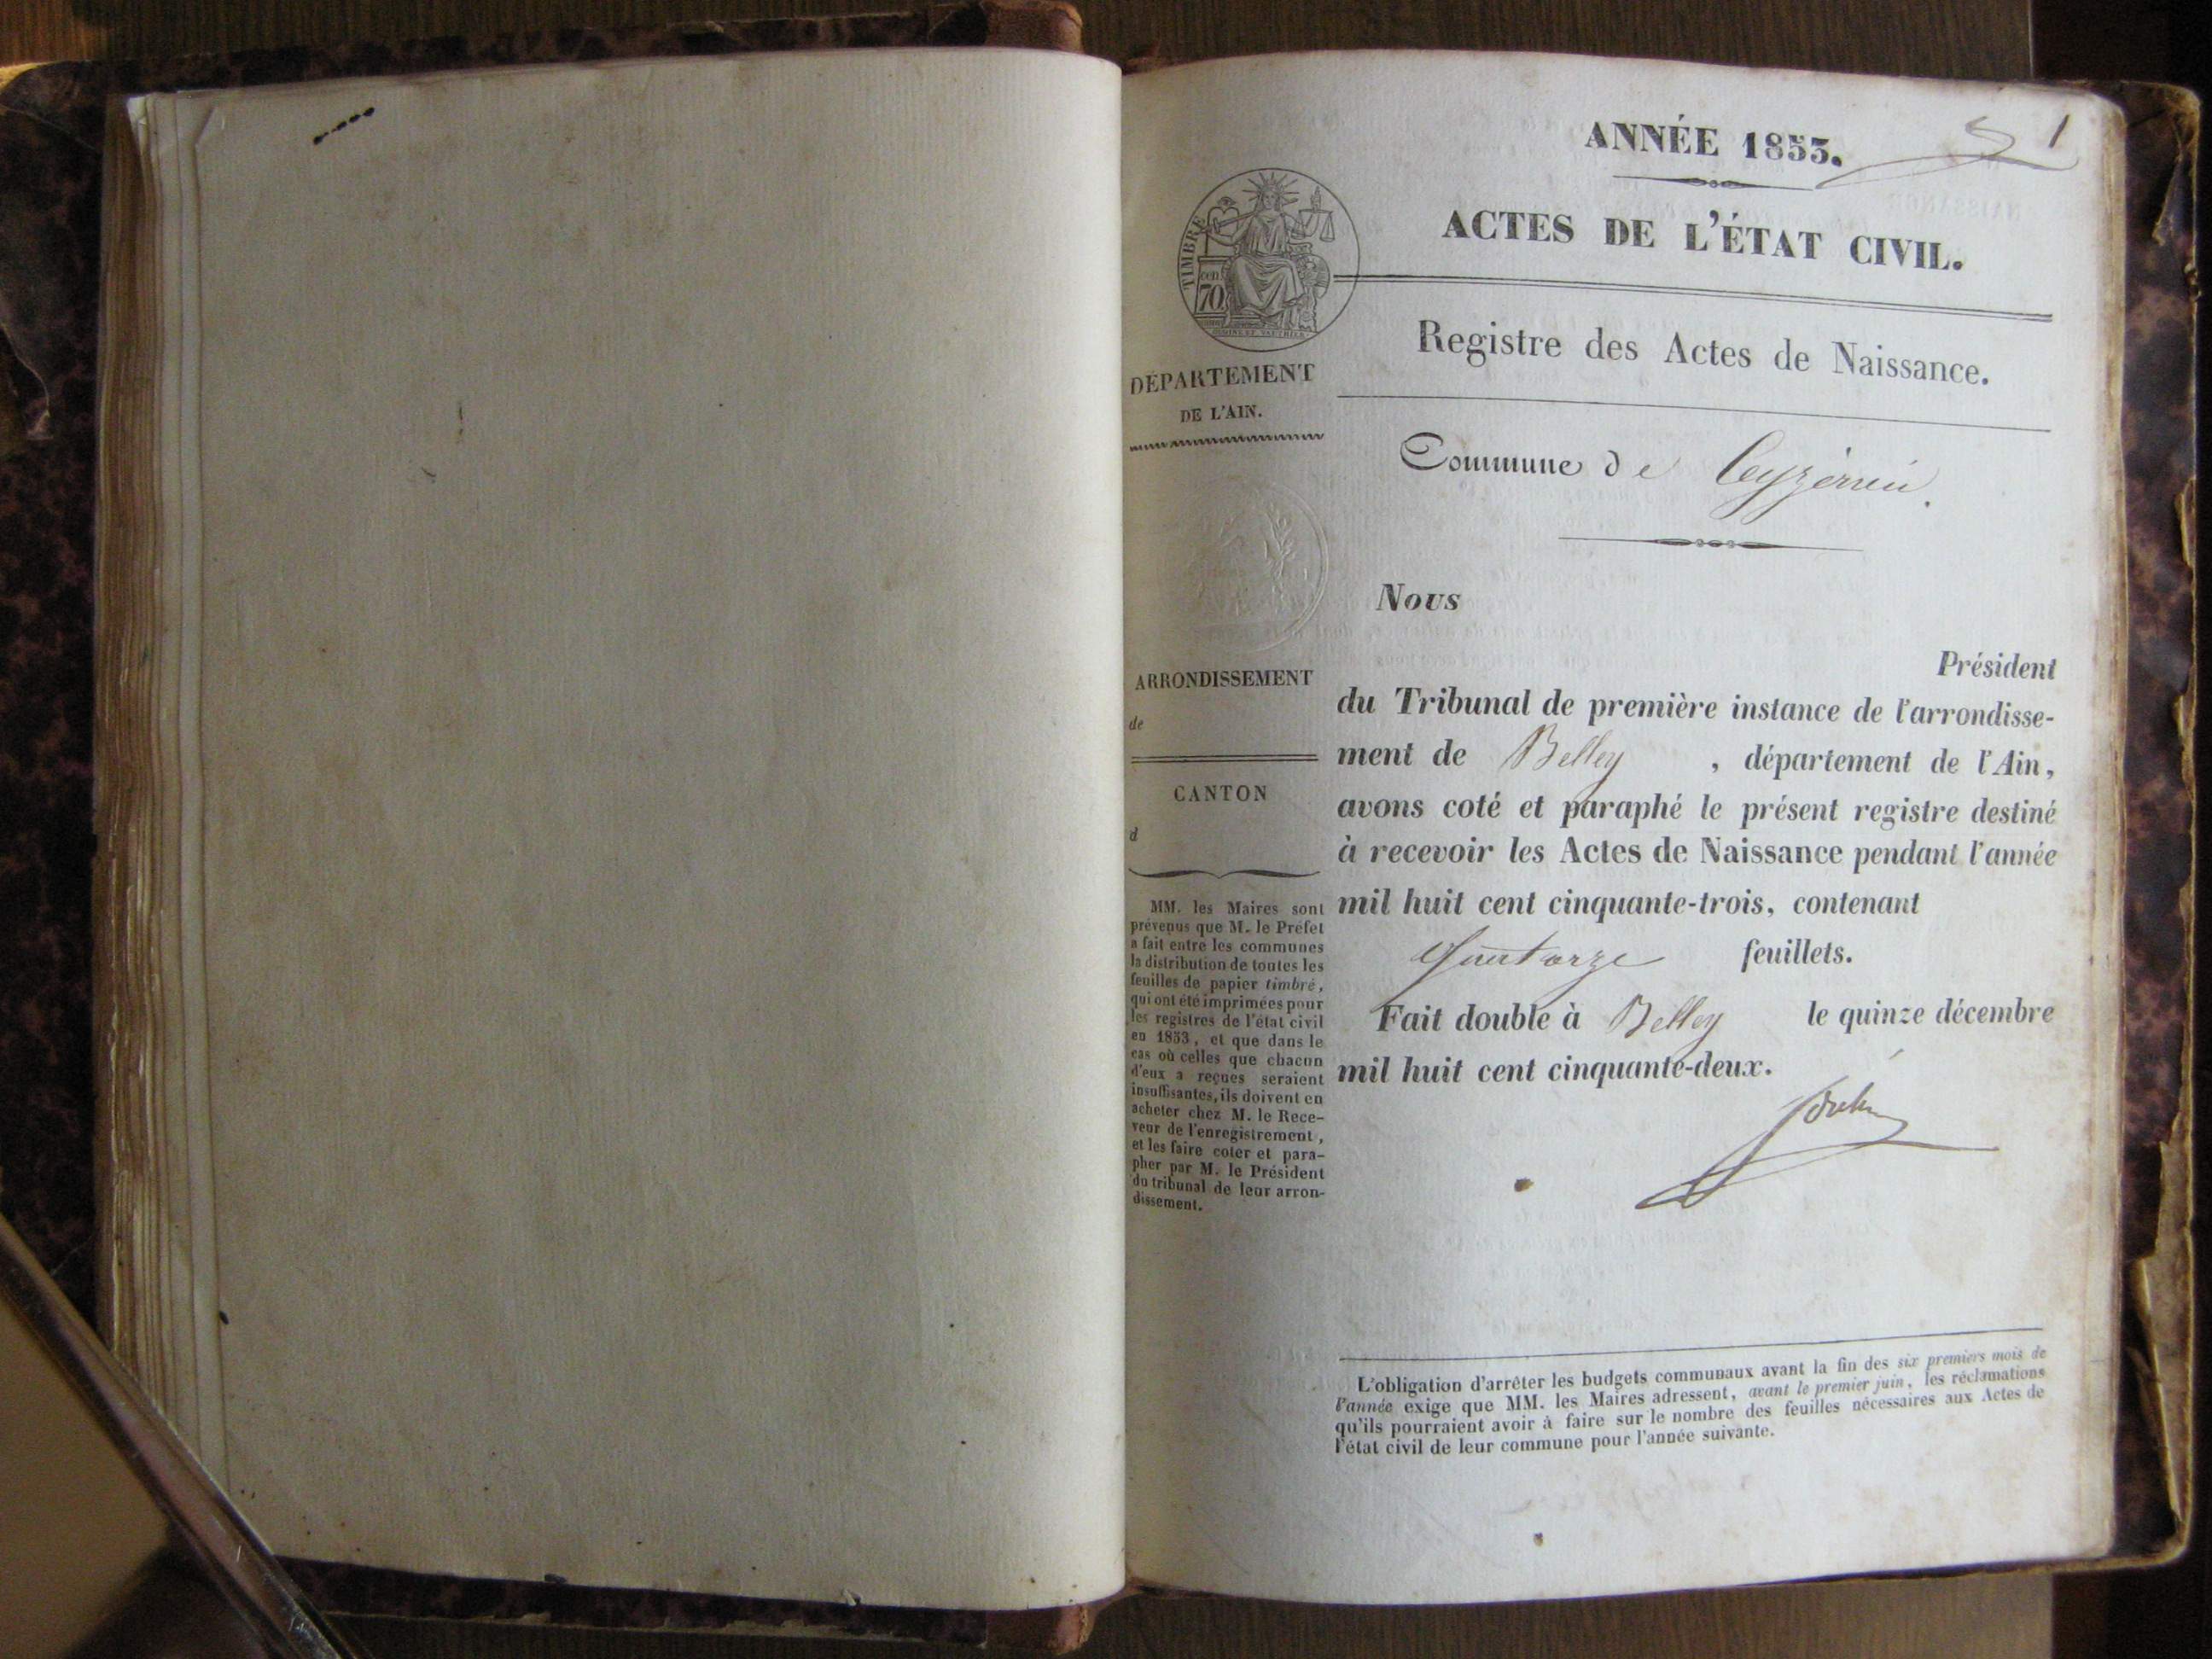 1
ANNÉE 1853.
ACTES DE L'ÉTAT CIVIL.
Registre des Actes de Naissance.
Commune de Ceyzérieu.
TIMBRE
cen
70
DÉPARTEMENT
DE L'AIN.
ARRONDISSEMENT
de
CANTON
d
MM. les Maires sont
prévenus que M. le Préfet
a fait entre les communes
la distribution de toutes les
feuilles de papier timbré,
qui ont été imprimées pour
les registres de l'état civil
en 1853, et que dans le
cas où celles que chacun
d'eux a reçues seraient
insuffisantes, ils doivent en
acheter chez M. le Rece-
veur de l'enregistrement,
et les faire coter et para-
pher par M. le Président
du tribunal de leur arron-
dissement.
Nous
Président
du Tribunal de première instance de l'arrondisse-
ment de Belley, département de l'Ain,
avons coté et paraphé le présent registre destiné
à recevoir les Actes de Naissance pendant l'année
mil huit cent cinquante-trois, contenant
quatorze feuillets.
Fait double à Belley le quinze décembre
mil huit cent cinquante-deux.
L'obligation d'arrêter les budgets communaux avant la fin des six premiers mois de
l'année exige que MM. les Maires adressent, avant le premier juin, les réclamations
qu'ils pourraient avoir à faire sur le nombre des feuilles nécessaires aux Actes de
l'état civil de leur commune pour l'année suivante.